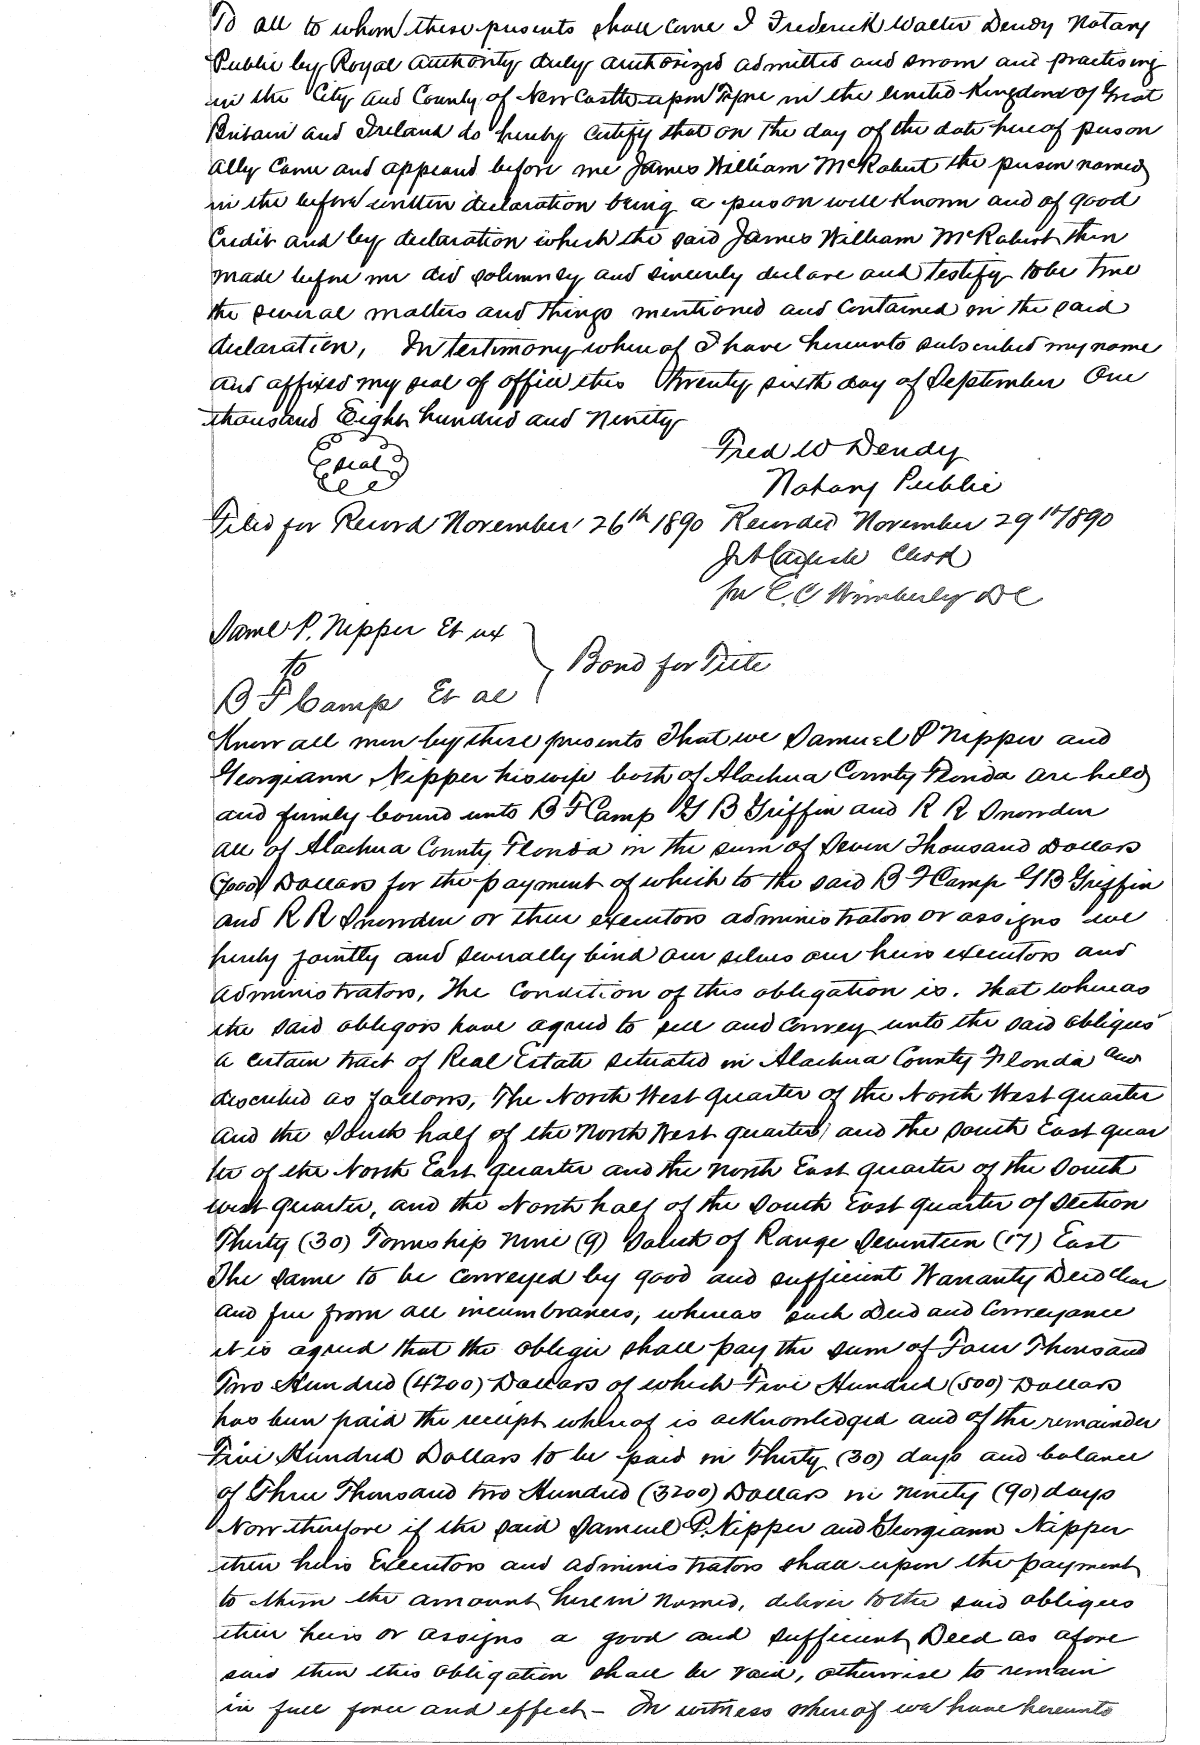 To all to whom these presents shall come I Frederick Walter Dendy Notary
Public by Royal authority duly authorized admitted and sworn and practising
in the City and County of New Castle upon Tyne in the United Kingdom of Great
Britain and Ireland do hereby certify that on the day of the date hereof person
ally came and appeard before me James William McRobert the person named
in the before written declaration being a person well Known and of good
Credit and by declaration which the said James William McRobert then
made before me did solemney and sincerely declare and testify to be true
the several matters and things mentioned and contained in the said
declaration, In testimony whereof I have hereunto subscribed my name
and affixed my seal of office this Twenty sixth day of September One
thousand Eight hundred and Ninety
Seal
Fred W Dendy
Notary Public
Filed for Record November 26th 1890 Recorded November 29th 1890
Clerk
per E. C Wimberly DC
Saml P. Nipper Et ux
to
B F Camp Et al
Bond for Title
Know all men by these presents That we Samuel P Nipper and
Georgiann Nipper his wife both of Alachua County Florida are held
and firmly bound unto B F Camp G B Griffin and R R Snowden
all of Alachua County Florida in the sum of Seven Thousand Dollars
(7000) Dollars for the payment of which to the said B F Camp G B Griffin
and R R Snowden or their executors administrators or assigns we
hereby jointly and severally bind our selves our heirs executors and
administrators, The Condition of this obligation is. That whereas
the said obligors have agreed to sell and convey unto the said obligees
a certain tract of Real Estate situated in Alachua County Florida and
described as follows, The North West quarter of the North West quarter
and the South half of the North West quarter, and the South East quar
ter of the North East quarter and the North East quarter of the South
west quarter, and the North half of the South East quarter of Section
Thirty (30) Township Nine (9) South of Range Seventeen (17) East
The same to be conveyed by good and sufficient Warranty Deed clear
and free from all incumbrances, whereas such Deed and Conveyance
it is agreed that the obligee shall pay the sum of Four Thousand
Two Hundred (4200) Dollars of which Five Hundred (500) Dollars
has been paid the receipt whereof is acknowledged and of the remainder
Five Hundred Dollars to be paid in Thirty (30) days and balance
of Three Thousand two Hundred (3200) Dollars in ninety (90) days
Now therefore if the said Samuel P. Nipper and Georgiann Nipper
their heirs Executors and administrators shall upon the payment
to them the amount herein named, deliver to the said obligees
their heirs or assigns a good and sufficient Deed as afore
said then this obligation shall be void, otherwise to remain
in full force and effect - In witness whereof we have hereunto